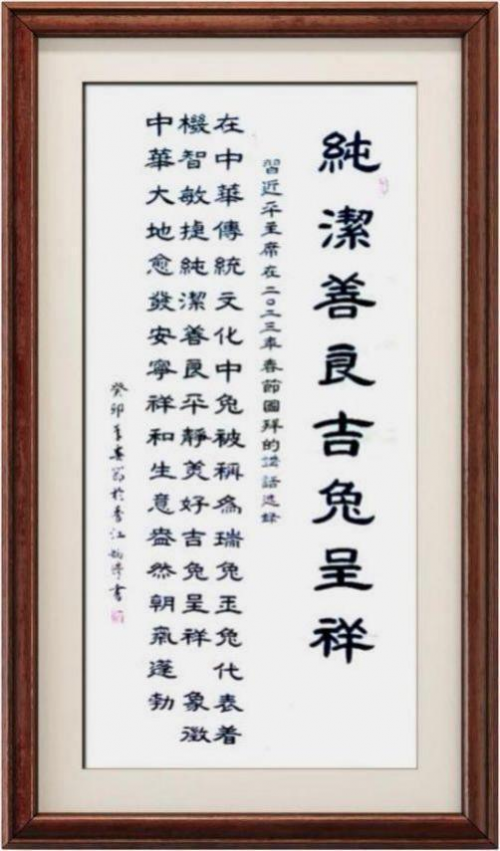 純潔善良吉兔呈祥
習近平主席在二〇二三年春節團拜的講話選錄
在中華傳統文化中兔被稱為瑞兔玉兔代表着
機智敏捷純潔善良平靜美好吉兔呈祥 象徵
中華大地愈發安寧祥和生意盎然朝氣蓬勃
癸卯年 於香江 書